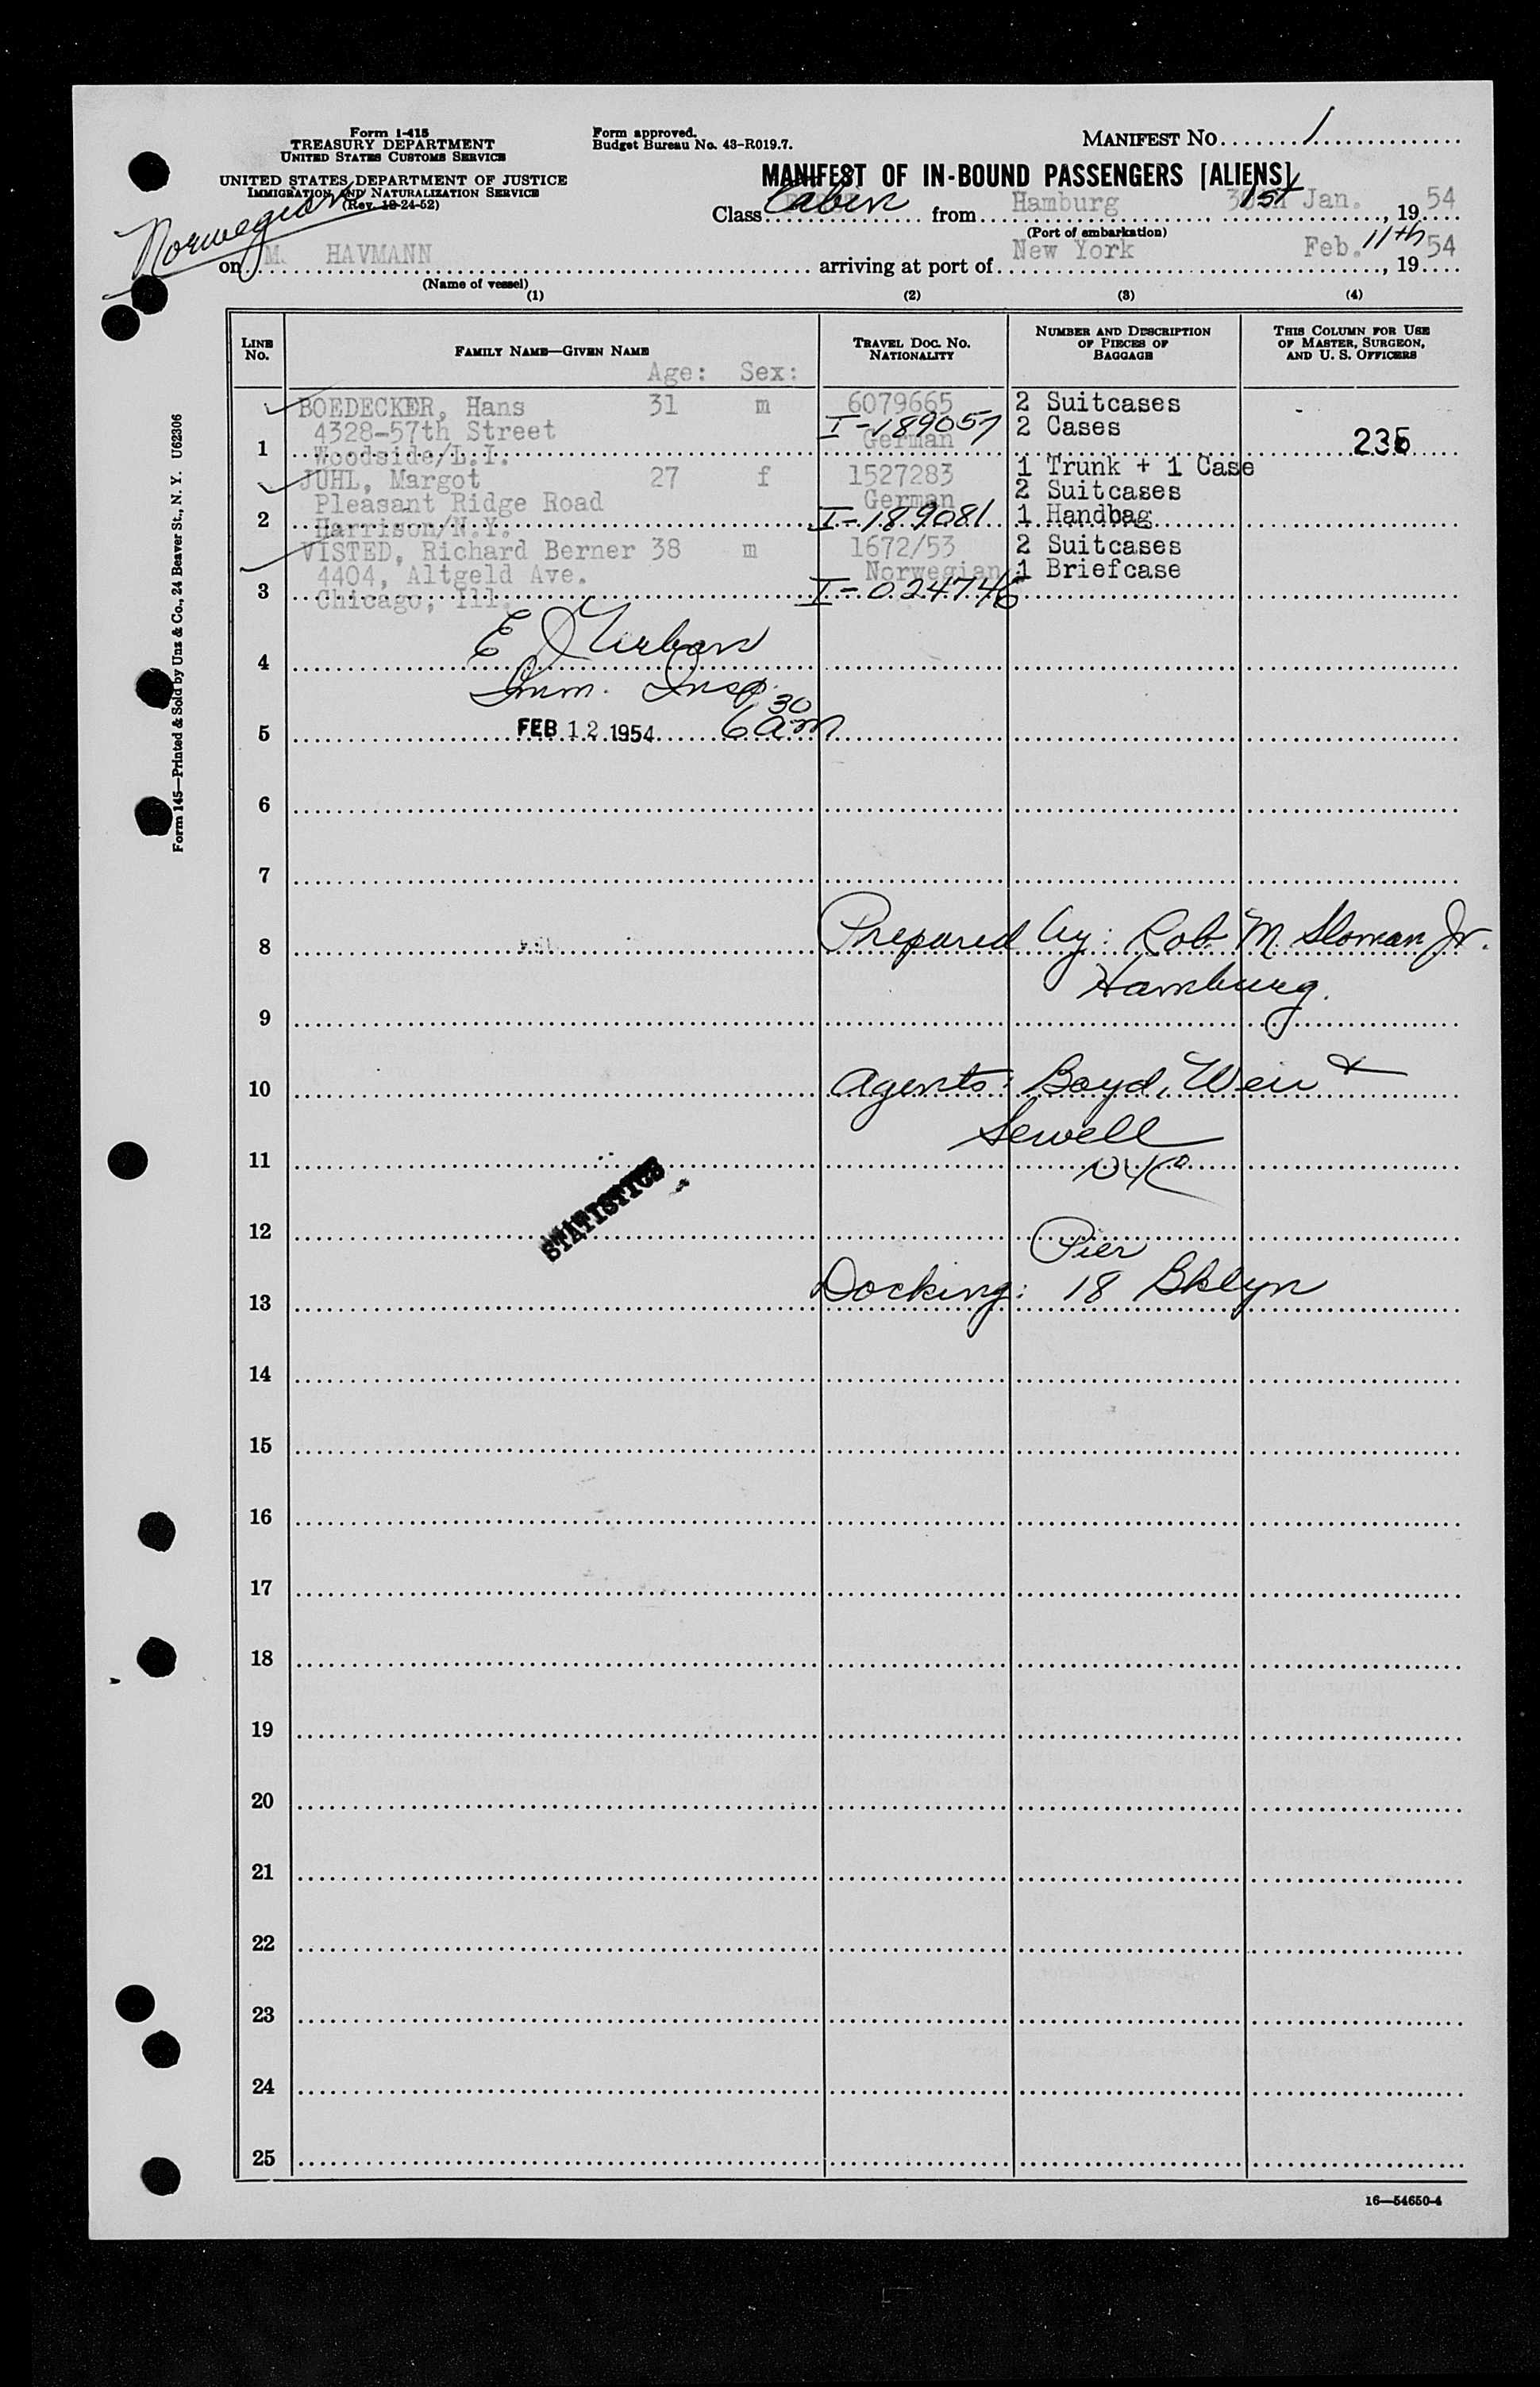 Form I-415
TREASURY DEPARTMENT
UNITED STATES CUSTOMS SERVICE
UNITED STATES DEPARTMENT OF JUSTICE
IMMIGRATION AND NATURALIZATION SERVICE
(Rev. 10-24-52)
Form approved.
Budget Bureau No. 43-R019.7.
MANIFEST NO. 1
MANIFEST OF IN-BOUND PASSENGERS [ALIENS]
Class Cabin from Hamburg 31st Jan., 19 54
(Port of embarkation)
Norwegian
on M. HAVMANN arriving at port of New York Feb. 11th, 19 54
(Name of vessel)
(1) (2) (3) (4)
LINE NO. FAMILY NAME—GIVEN NAME TRAVEL DOC. NO. NATIONALITY NUMBER AND DESCRIPTION OF PIECES OF BAGGAGE THIS COLUMN FOR USE OF MASTER, SURGEON, AND U. S. OFFICERS
Age: Sex:
BOEDECKER, Hans 31 m 6079665 2 Suitcases
4328-57th Street I-189057 2 Cases
1 Woodside/L.I. German 235
JUHL, Margot 27 f 1527283 1 Trunk + 1 Case
Pleasant Ridge Road German 2 Suitcases
2 Harrison/N.Y. I-189081 1 Handbag
VISTED, Richard Berner 38 m 1672/53 2 Suitcases
4404, Altgeld Ave. Norwegian 1 Briefcase
3 Chicago, Ill. I-024746
4 E
Imm. Insp.
5 FEB 12 1954 6 30 am
6
7
8 Prepared by: Rob. M. Sloman Jr.
Hamburg.
9
10 Agents: Boyd, Weir &
Sewell
11 NYC
STATISTICS
12 Pier
13 Docking: 18 Bklyn
14
15
16
17
18
19
20
21
22
23
24
25
16—54650-4
Form 145—Printed & Sold by Unz & Co., 24 Beaver St., N. Y. U62306